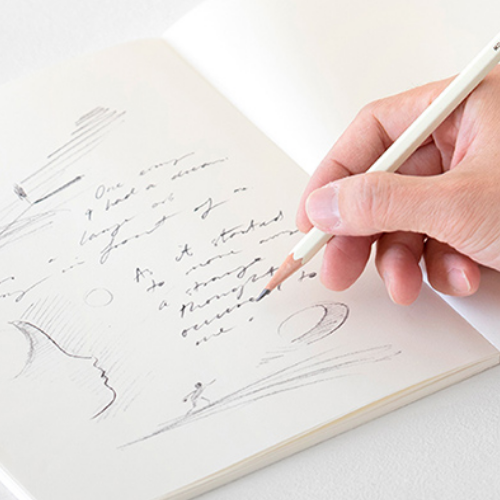 One
I had a dream.
large
in front of a
As it started
to move
a strange
thought to
occurred
me.